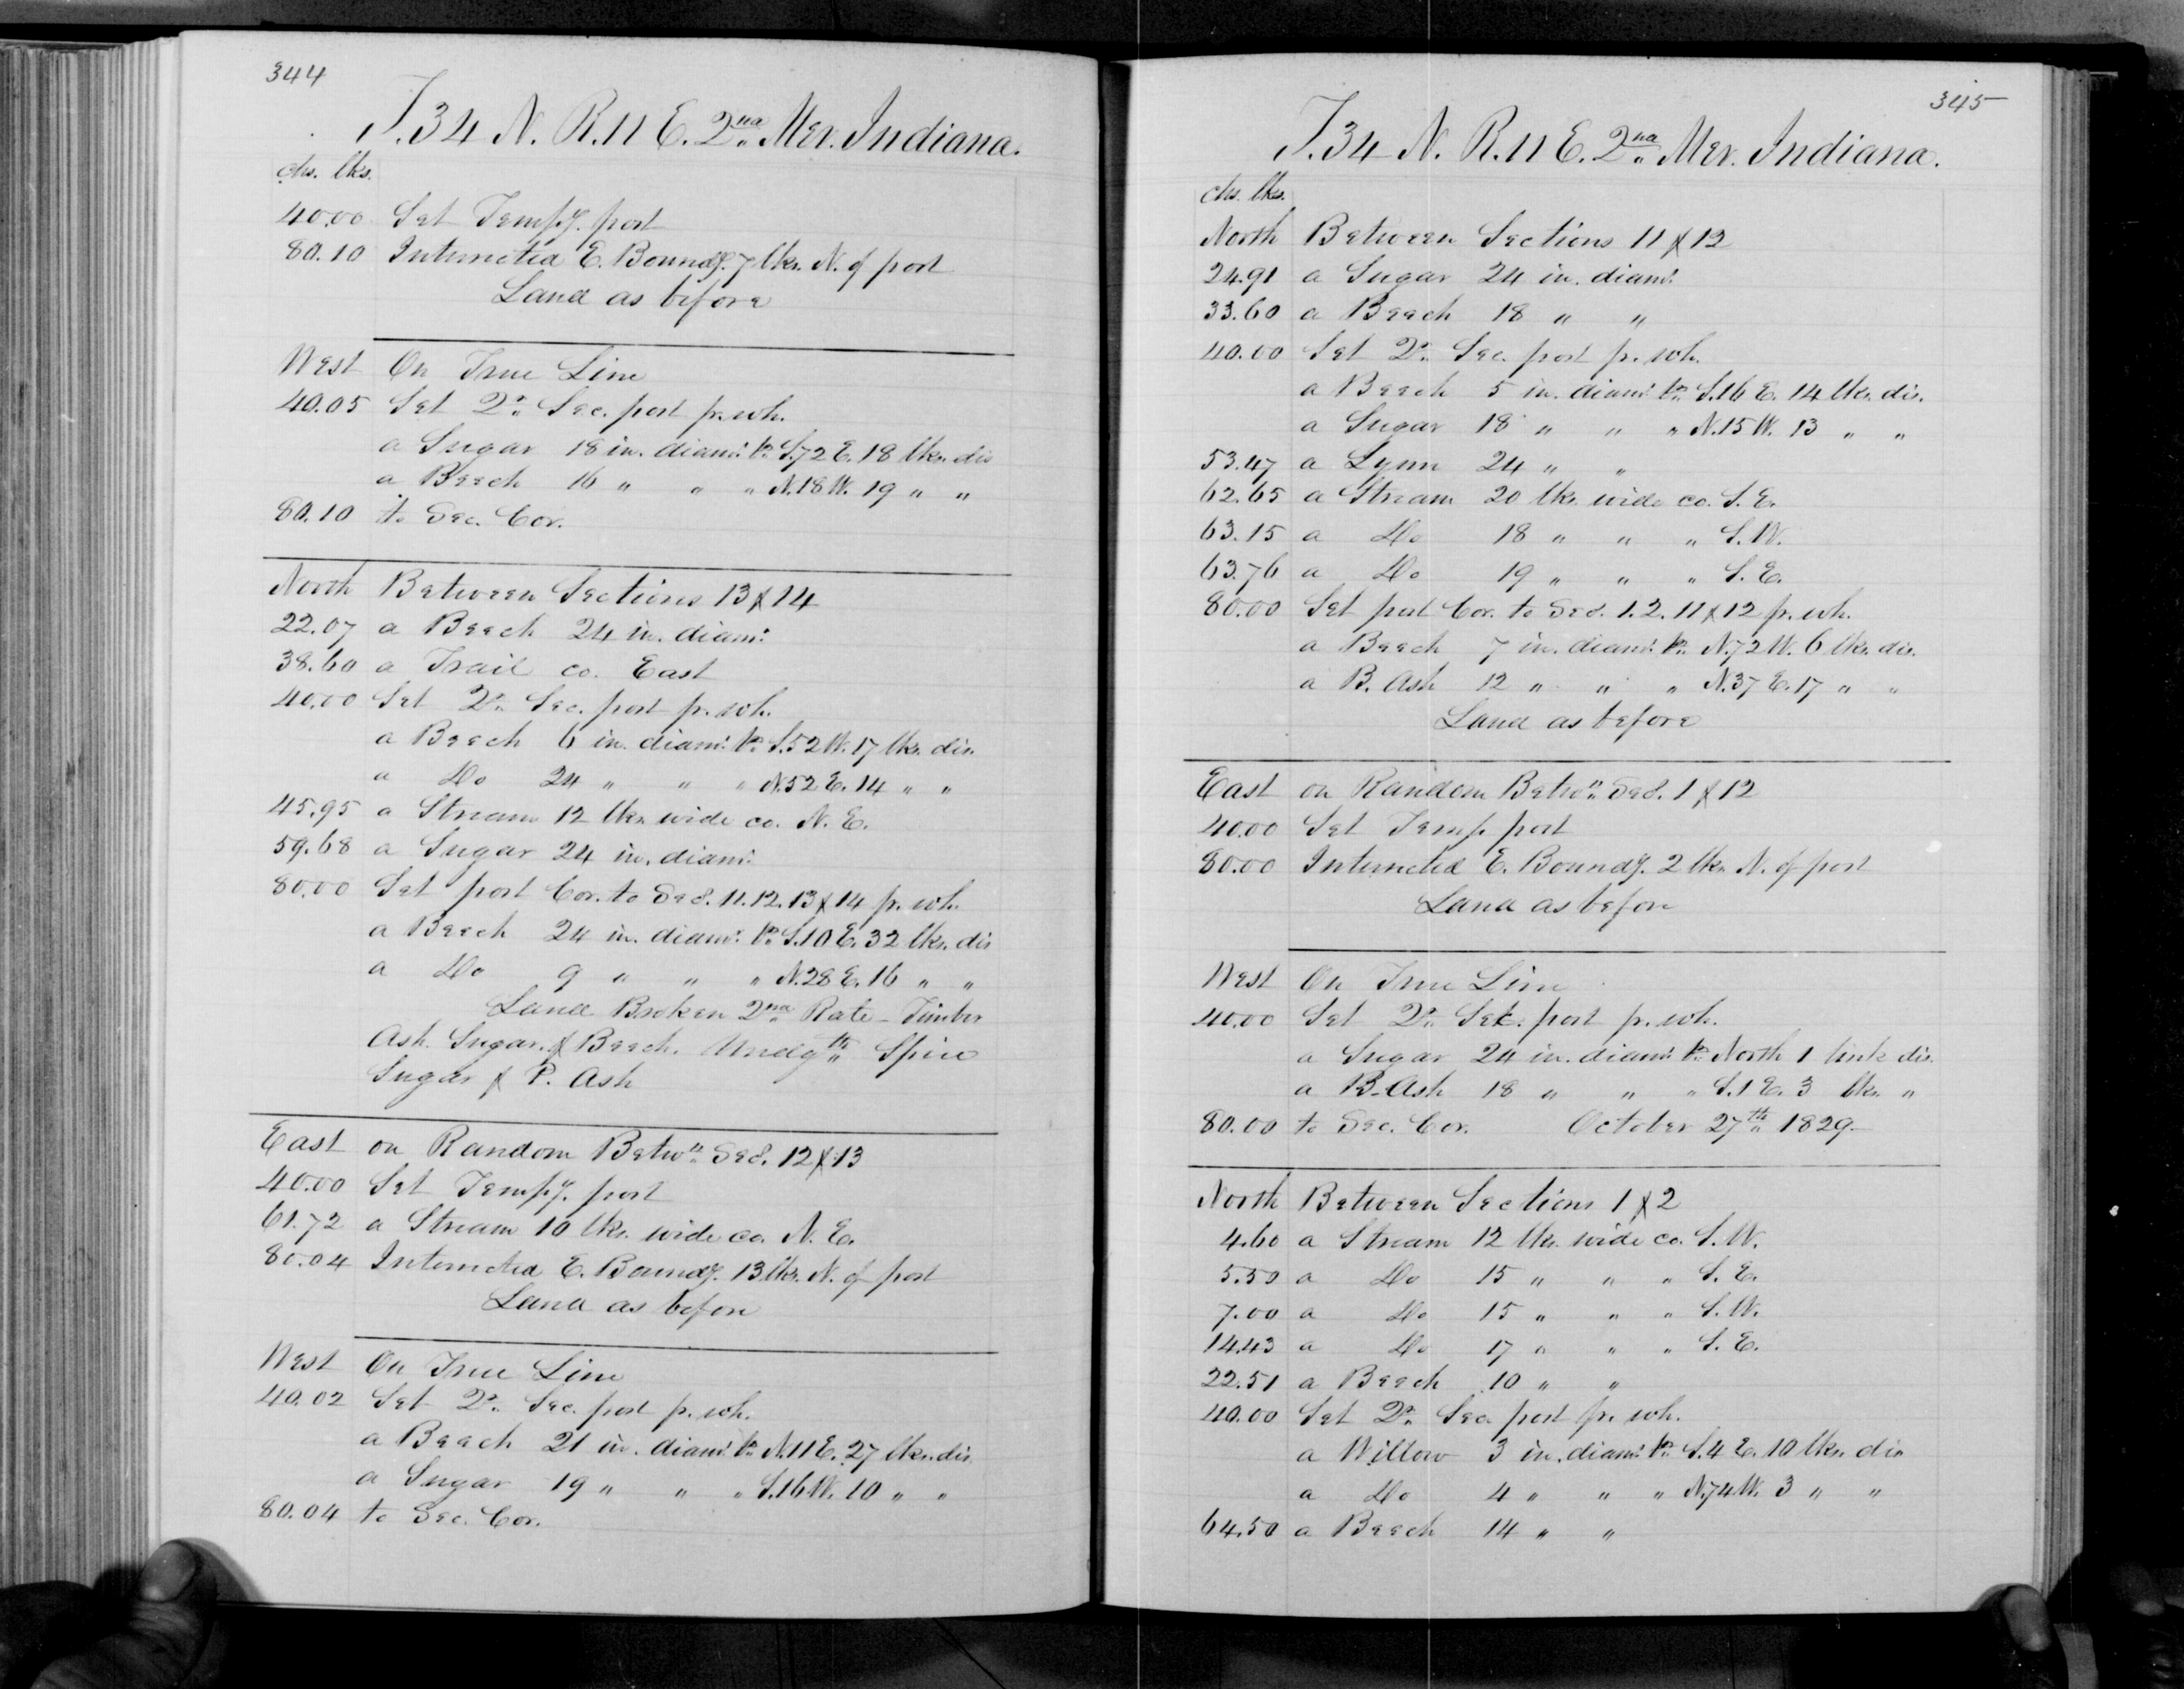 344
T. 34 N. R. 11 E. 2nd Mer. Indiana.
chs. lks.
40.00 Set Tempy. post
80.10 Intersected E. Boundy. 7 lks. N. of post
Land as before
West On True Line
40.05 Set Qr. Sec. post fr. wh.
a Sugar 18 in. diamr. br. S.72 E. 18 lks. dis
a Beech 16 " " " N.18 W. 19 " "
80.10 to Sec. Cor.
North Between Sections 13 & 14
22.07 a Beech 24 in. diamr.
38.60 a Trail co. East
40.00 Set Qr. Sec. post fr. wh.
a Beech 6 in. diamr. br. S.52 W. 17 lks. dis.
a Do 24 " " " N.52 E. 14 " "
45.95 a Stream 12 lks. wide co. N. E.
59.68 a Sugar 24 in. diamr.
80.00 Set post Cor. to Secs. 11. 12. 13 & 14 fr. wh.
a Beech 24 in. diamr. br. S.10 E. 32 lks. dis
a Do 9 " " " N.28 E. 16 " "
Land Broken 2nd Rate - Timber
Ash. Sugar. & Beech. Undgth. Spice
Sugar & P. Ash
East on Random Betwn. Secs. 12 & 13
40.00 Set Tempy. post
61.72 a Stream 10 lks. wide co. N. E.
80.04 Intersected E. Boundy. 13 lks. N. of post
Land as before
West On True Line
40.02 Set Qr. Sec. post fr. wh.
a Beech 21 in. diamr. br. N.11 E. 27 lks. dis
a Sugar 19 " " " S.16 W. 10 " "
80.04 to Sec. Cor.
345
T. 34 N. R. 11 E. 2nd Mer. Indiana.
chs. lks.
North Between Sections 11 & 12
24.91 a Sugar 24 in. diamr.
33.60 a Beech 18 " "
40.00 Set Qr. Sec. post fr. wh.
a Beech 5 in. diamr. br. S.16 E. 14 lks. dis.
a Sugar 18 " " " N.15 W. 13 " "
53.47 a Lynn 24 " "
62.65 a Stream 20 lks. wide co. S. E.
63.15 a Do 18 " " " S. W.
63.76 a Do 19 " " " S. E.
80.00 Set post Cor. to Secs. 1. 2. 11 & 12 fr. wh.
a Beech 7 in. diamr. br. N.72 W. 6 lks. dis.
a B. Ash 12 " " " N.37 E. 17 " "
Land as before
East on Random Betwn. Secs. 1 & 12
40.00 Set Temp. post
80.00 Intersected E. Boundy. 2 lks. N. of post
Land as before
West On True Line
40.00 Set Qr. Sec. post fr. wh.
a Sugar 24 in. diamr. br. North 1 link dis.
a B. Ash 18 " " " S.1 E. 3 lks. "
80.00 to Sec. Cor. October 27th 1829.
North Between Sections 1 & 2
4.60 a Stream 12 lks. wide co. S. W.
5.50 a Do 15 " " " S. E.
7.00 a Do 15 " " " S. W.
14.43 a Do 17 " " " S. E.
22.51 a Beech 10 " "
40.00 Set Qr. Sec. post fr. wh.
a Willow 3 in. diamr. br. S.4 E. 10 lks. dis
a Do 4 " " " N.74 W. 3 " "
64.50 a Beech 14 " "